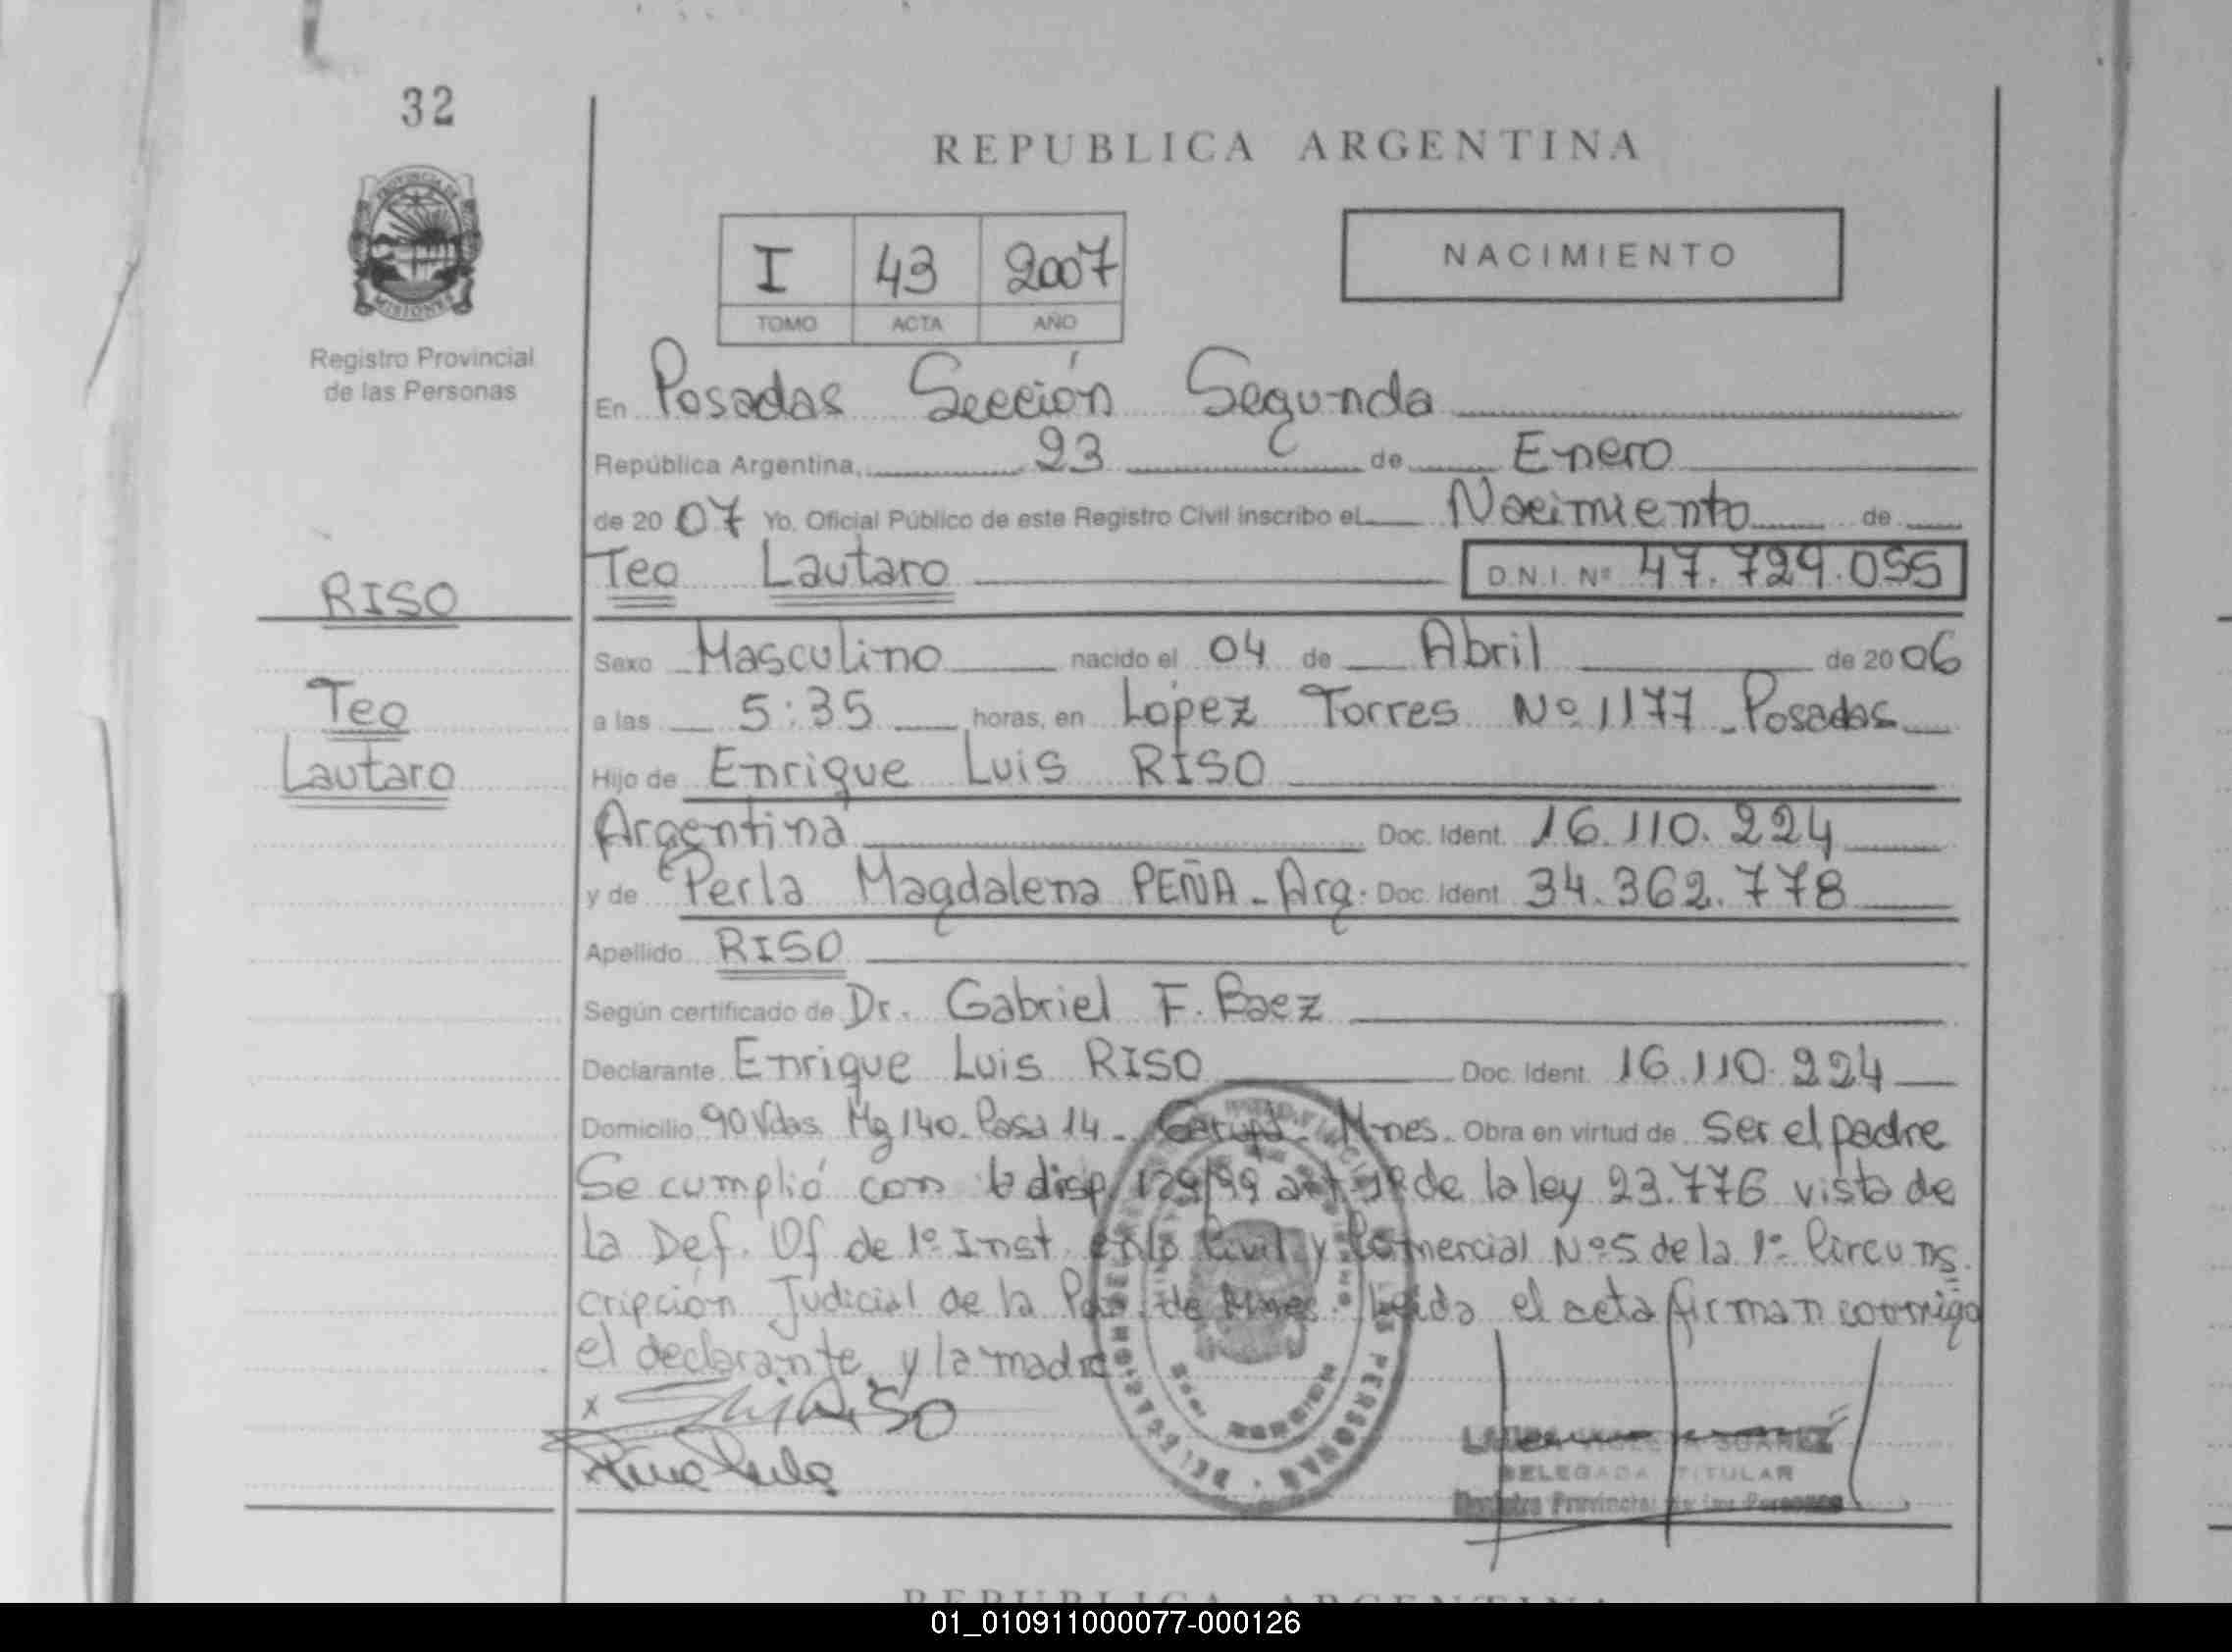 32
REPUBLICA ARGENTINA
PROVINCIA DE
MISIONES
Registro Provincial
de las Personas
I 43 2007
TOMO ACTA AÑO
NACIMIENTO
En Posadas Sección Segunda
República Argentina, 23 de Enero
de 20 07 Yo, Oficial Público de este Registro Civil inscribo el Nacimiento de
Teo Lautaro D.N.I. Nº 47.729.055
RISO
Sexo Masculino nacido el 04 de Abril de 20 06
Teo
a las 5:35 horas, en López Torres Nº 1177 - Posadas
Lautaro
Hijo de Enrique Luis RISO
Argentina Doc. Ident. 16.110.224
y de Perla Magdalena PEÑA - Arg. Doc. Ident. 34.362.778
Apellido RISO
Según certificado de Dr. Gabriel F. Baez
Declarante Enrique Luis RISO Doc. Ident. 16.110.224
Domicilio 90 Vdas. Mz 140. Casa 14 - Garupá - Mnes. Obra en virtud de Ser el padre
Se cumplió con la disp. 129/99 art. de la ley 23.776 visto de
la Def. Of de 1º Inst. en lo Civil y Comercial Nº 5 de la 1º Circuns
cripción Judicial de la de Mnes. leída el acta firman conmigo
el declarante, y la madre
x Riso
SUAREZ
DELEGADA TITULAR
Registro Provincial de las Personas
REPUBLICA ARGENTINA
01_010911000077-000126